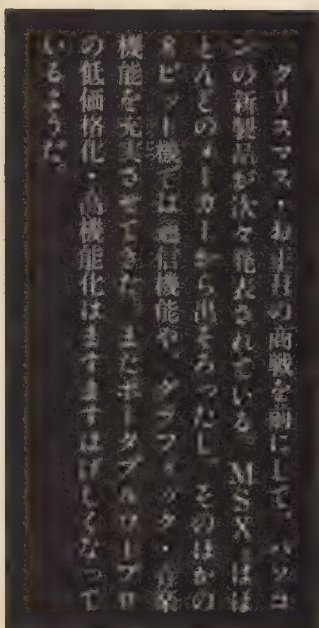 クリスマス・お正月の商戦を前にして、パソコ
ンの新製品が次々発表されている。MSXはほ
とんどのメーカーから出そろったし、そのほかの
8ビット機では通信機能や、グラフィック・音楽
機能を充実させてきた。またポータブルワープロ
の低価格化・高機能化はますますはげしくなって
いるそうだ。